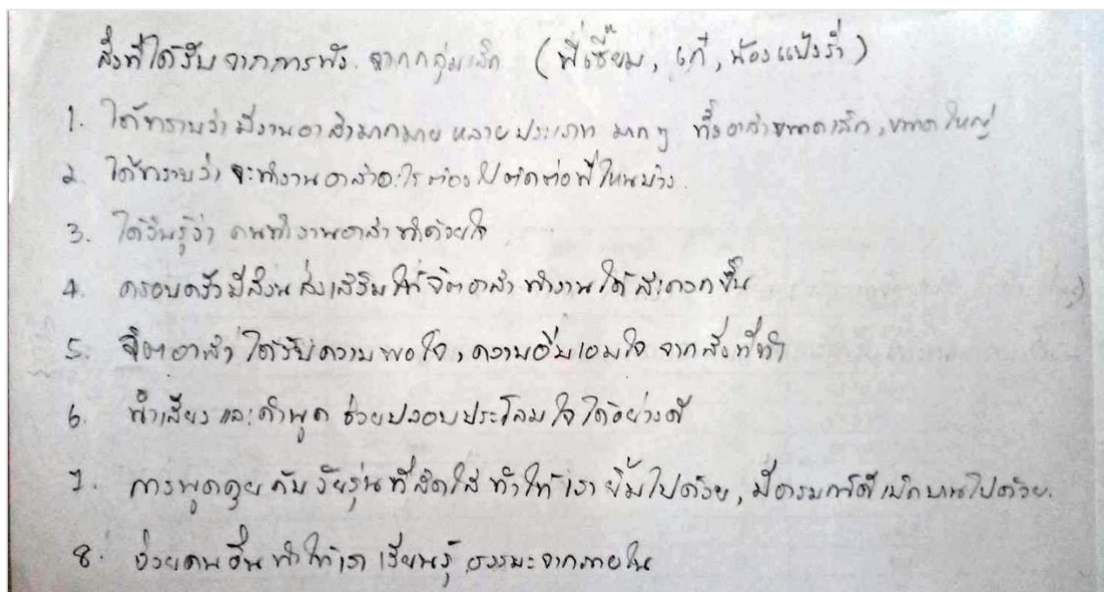 สิ่งที่ได้รับจากการฟัง จากกลุ่มเล็ก (พี่เซี้ยม, เก๋, น้องแป้งร่ำ)
1. ได้ทราบว่ามีงานอาสามากมาย หลายประเภท มากๆ ทั้งอาสาขนาดเล็ก, ขนาดใหญ่
2. ได้ทราบว่า จะทำงานอาสาอะไร ต้องไปติดต่อที่ไหนบ้าง
3. ได้รับรู้ว่า คนทำงานอาสา ทำด้วยใจ
4. ครอบครัวมีส่วนส่งเสริมให้จิตอาสา ทำงานได้สะดวกขึ้น
5. จิตอาสา ได้รับความพอใจ, ความอิ่มเอมใจ จากสิ่งที่ทำ
6. น้ำเสียง และคำพูด ช่วยปลอบประโลมใจได้อย่างดี
7. การพูดคุยกับวัยรุ่นที่สดใส ทำให้เรายิ้มไปด้วย, มีอารมณ์ดี เบิกบานไปด้วย.
8. ช่วยคนอื่น ทำให้เรา เรียนรู้ ธรรมะจากภายใน